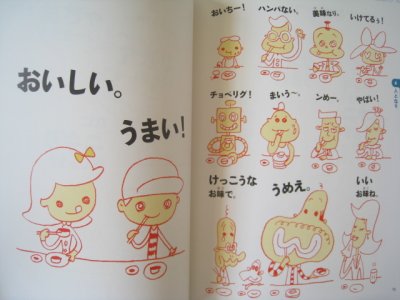 おいしい。
うまい!
おいちー!
ハンパない。
美味なり。
いけてるぅ!
チョベリグ!
まいうー。
ンめー。
やばい!
けっこうな
お味で。
うめえ。
いい
お味ね。